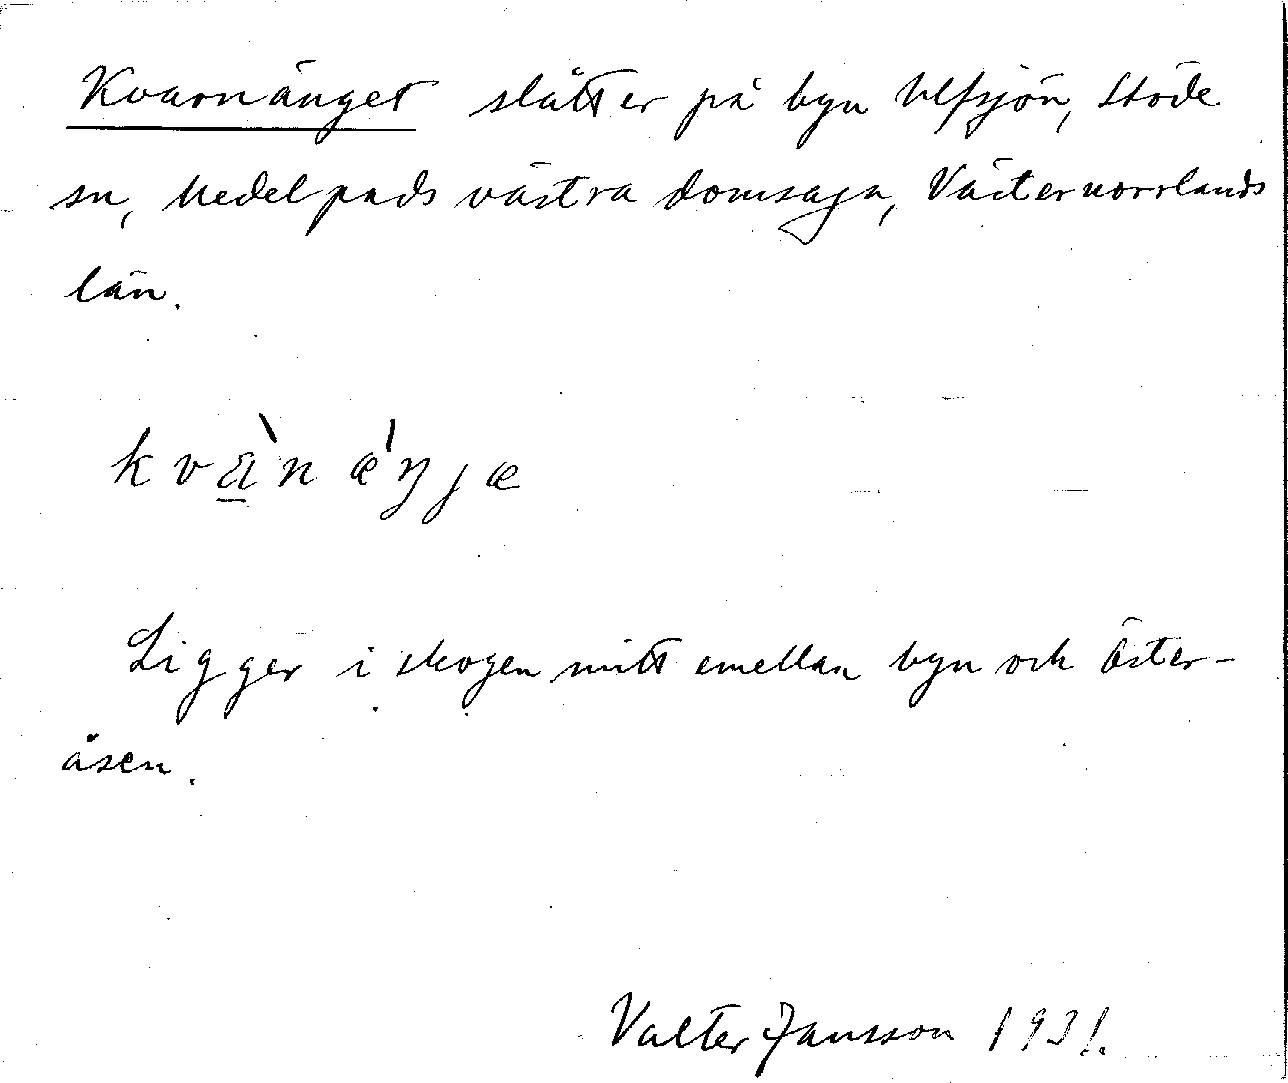 Kvarnänget slåtter på byn Ulfsjön, Stöde
sn, Medelpads västra domsaga, Västernorrlands
län.
kvàn ǽŋjæ
Ligger i skogen mitt emellan byn och Öster-
åsen.
Valter Jansson 1931.